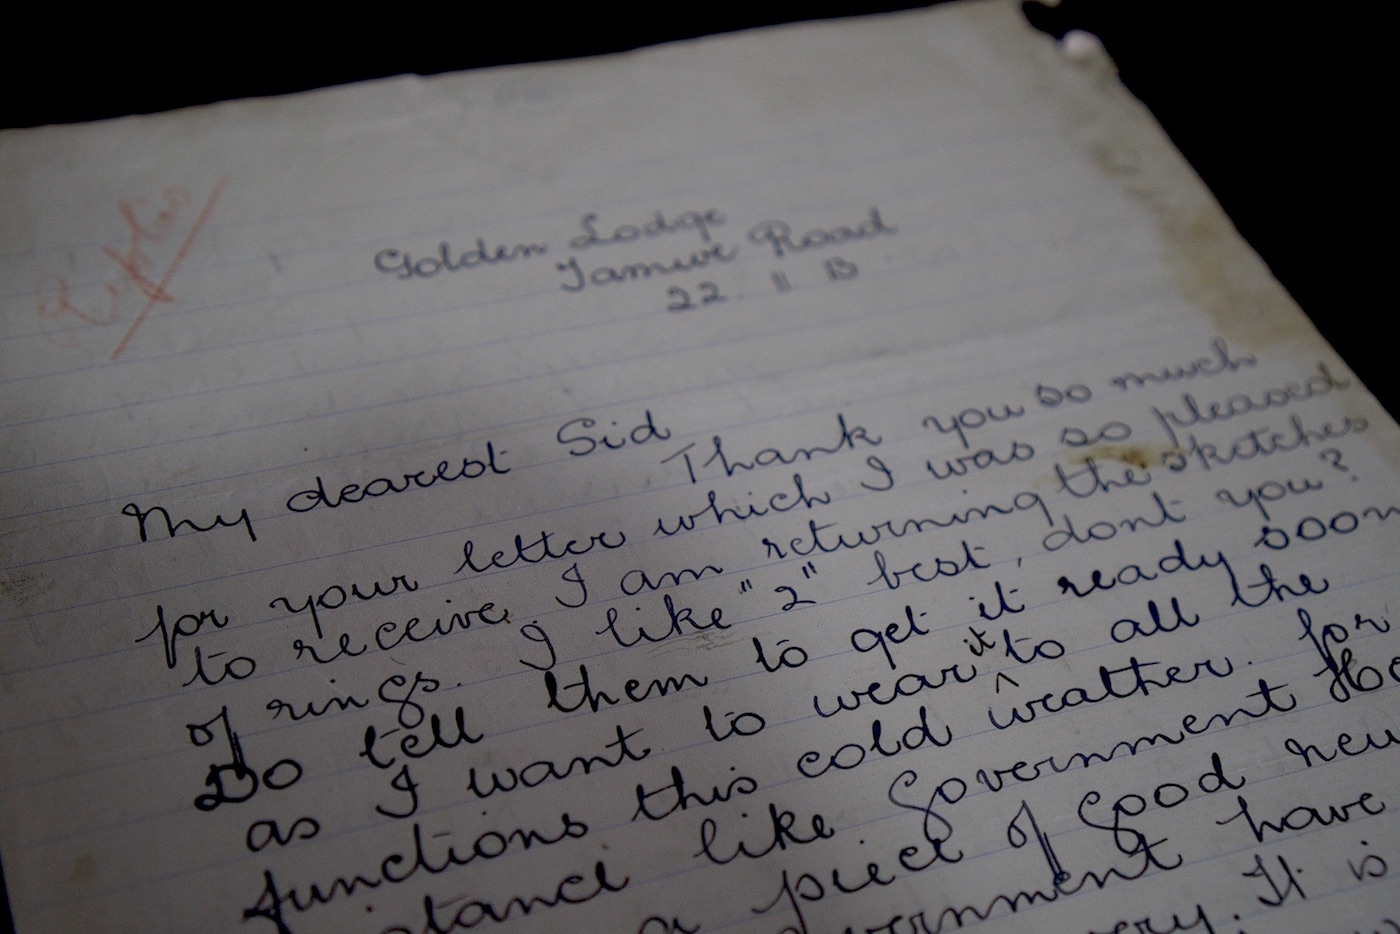 Golden Lodge
Jamuve Road
22 11 13
My dearest Sid
Thank you so much
for your letter which I was so pleased
to receive. I am returning the skatches
of rings. I like "2" best, dont you?
Do tell them to get it ready soon
as I want to wear it to all the
functions this cold weather. for
stance like Government Ho
a piece of good new
vernment have
ery. It is